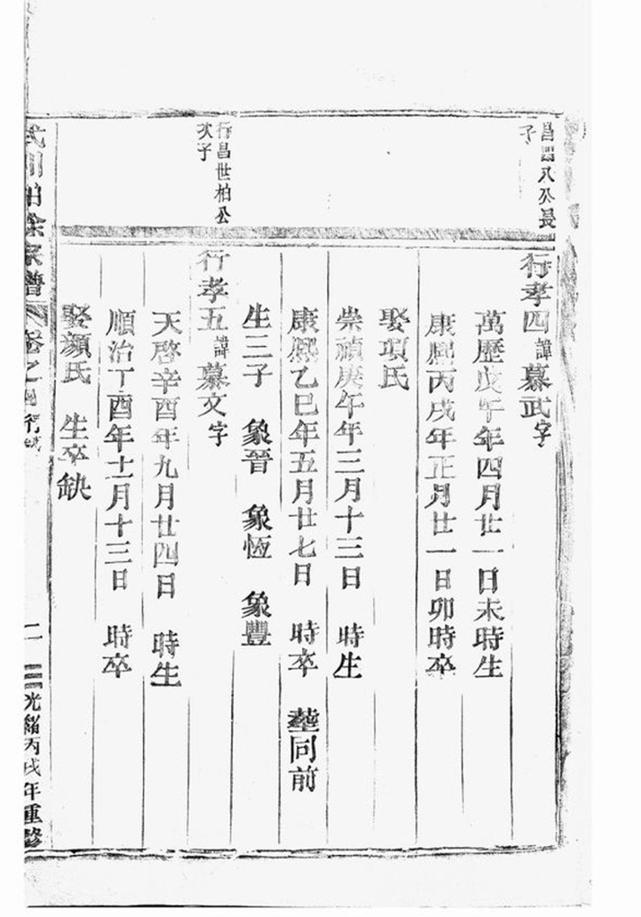 昌八公長
子
行孝四諱慕武字
萬歷戊午年四月廿一日未時生
康熙丙戌年正月廿一日卯時卒
娶項氏
崇禎庚午年三月十三日 時生
康熙乙巳年五月廿七日 時卒 塟同前
生三子 象晉 象恆 象豐
行昌世柏公
次子
行孝五諱慕文字
天啓辛酉年九月廿四日 時生
順治丁酉年十一月十三日 時卒
娶顏氏 生卒缺
武川柏徐家譜 卷之 行
二
光緒丙戌年重